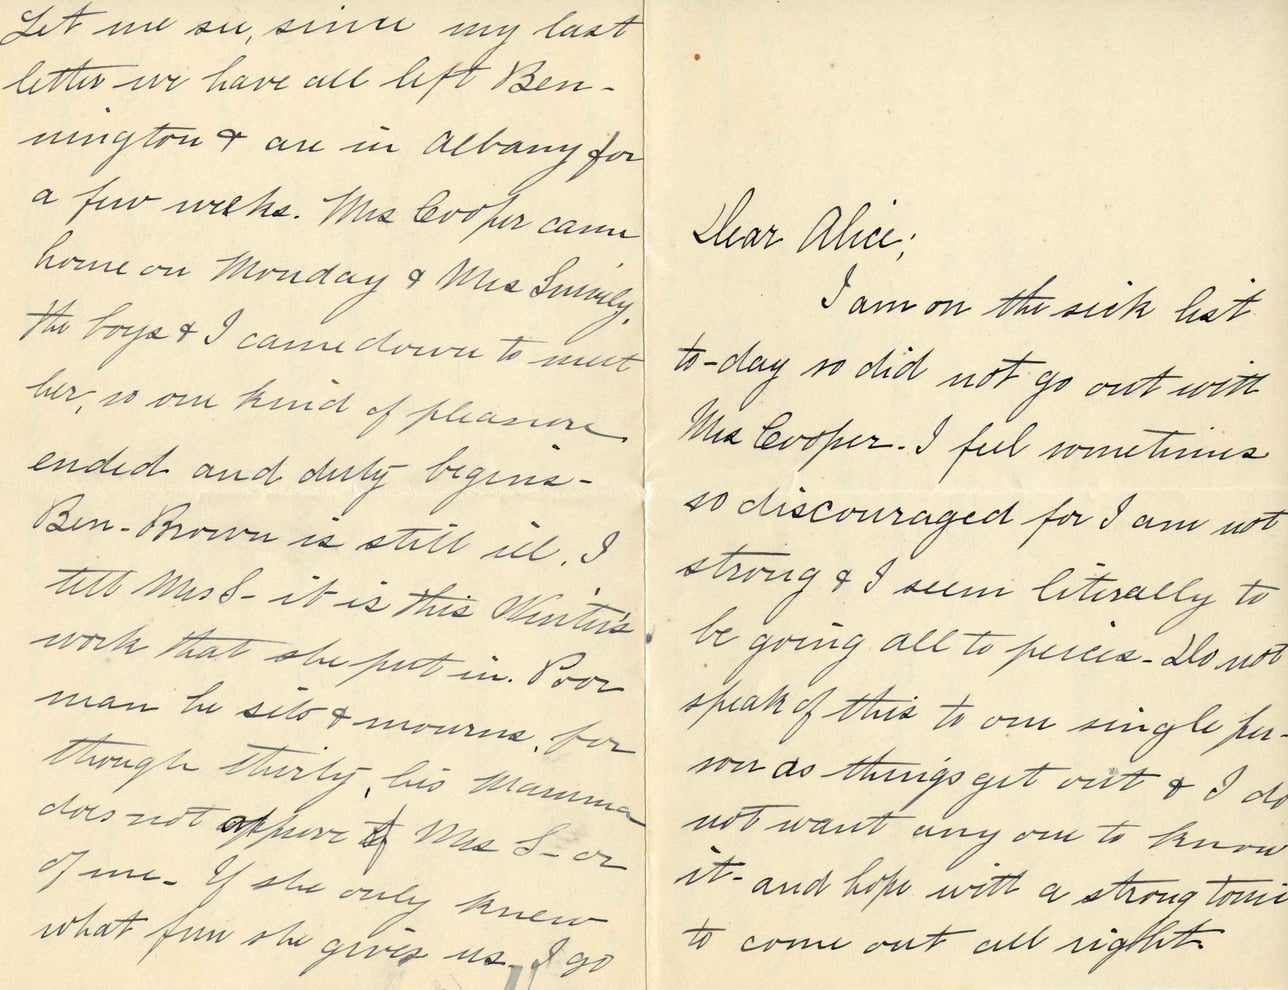 Dear Alice;
I am on the sick list
to-day so did not go out with
Mrs Cooper. I feel sometimes
so discouraged for I am not
strong & I seem literally to
be going all to peices. Do not
speak of this to one single per-
son as things get out & I do
not want any one to know
it - and hope with a strong tonic
to come out all right.
Let me see, since my last
letter we have all left Ben-
nington & are in Albany for
a few weeks. Mrs Cooper came
home on Monday & Mrs
the boys & I came down to meet
her, so one kind of pleasure
ended and duty begins -
Ben-Brown is still ill, I
tell Mrs S- it is this Winter's
work that she put in. Poor
man he sits & mourns, for
though thirty, his Mamma
does not approve of Mrs S- or
of me - If she only knew
what fun she gives us - I go